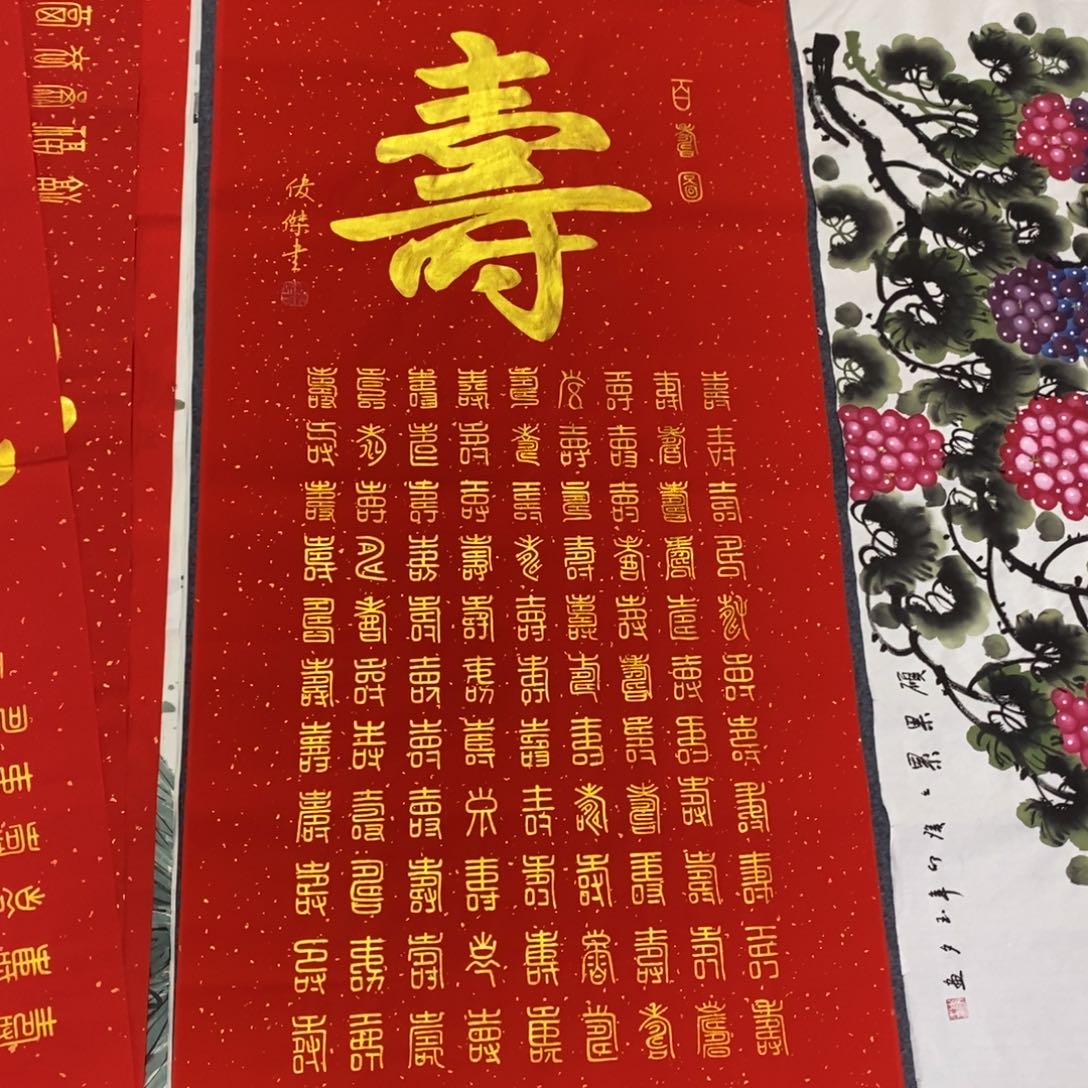 百壽圖
壽
俊傑書
壽壽壽壽壽壽壽壽壽壽壽
壽壽壽壽壽壽壽壽壽壽壽
壽壽壽壽壽壽壽壽壽壽壽
壽壽壽壽壽壽壽壽壽壽壽
壽壽壽壽壽壽壽壽壽壽壽
壽壽壽壽壽壽壽壽壽壽壽
壽壽壽壽壽壽壽壽壽壽壽
壽壽壽壽壽壽壽壽壽壽壽
壽壽壽壽壽壽壽壽壽壽壽
碩果累〻